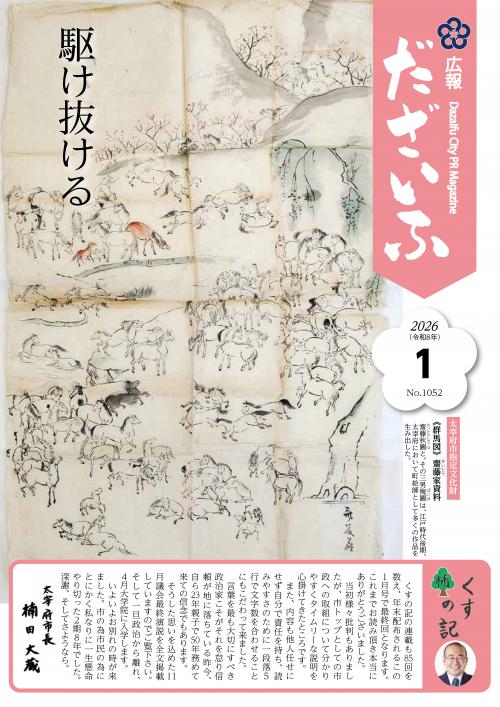 広報
だざいふ
Dazaifu City PR Magazine
駆け抜ける
2026
(令和8年)
1
No.1052
太宰府市指定文化財
《群馬図》齋藤家資料
齋藤秋圃と、その三男梅圃は、江戸時代後期、
太宰府において町絵師として多くの作品を
生み出した。
くす
楠
の記
くすの記の連載も85回を
数え、年末配布されるこの
1月号で最終回となります。
これまでお読み頂き本当に
ありがとうございました。
当初様々批判もありまし
たが、市トップとしての市
政への取組について分かり
やすくタイムリーな説明を
心掛けてきたところです。
また、内容も他人任せに
せず自分で責任を持ち、読
みやすさのために一段落5
行で文字数を合わせること
にもこだわって来ました。
言葉を最も大切にすべき
政治家こそがそれを怠り信
頼が地に落ちている昨今、
自ら23年親子で55年務めて
来ての信念でもあります。
そうした思いを込めた11
月議会最終演説を全文掲載
していますのでご覧下さい。
そして一旦政治から離れ、
4月大学院に入学します。
いよいよお別れの時が来
ました。市の為市民の為に
とにかく私なりに一生懸命
やり切った2期8年でした。
深謝、そしてさようなら。
太宰府市長
楠田大蔵